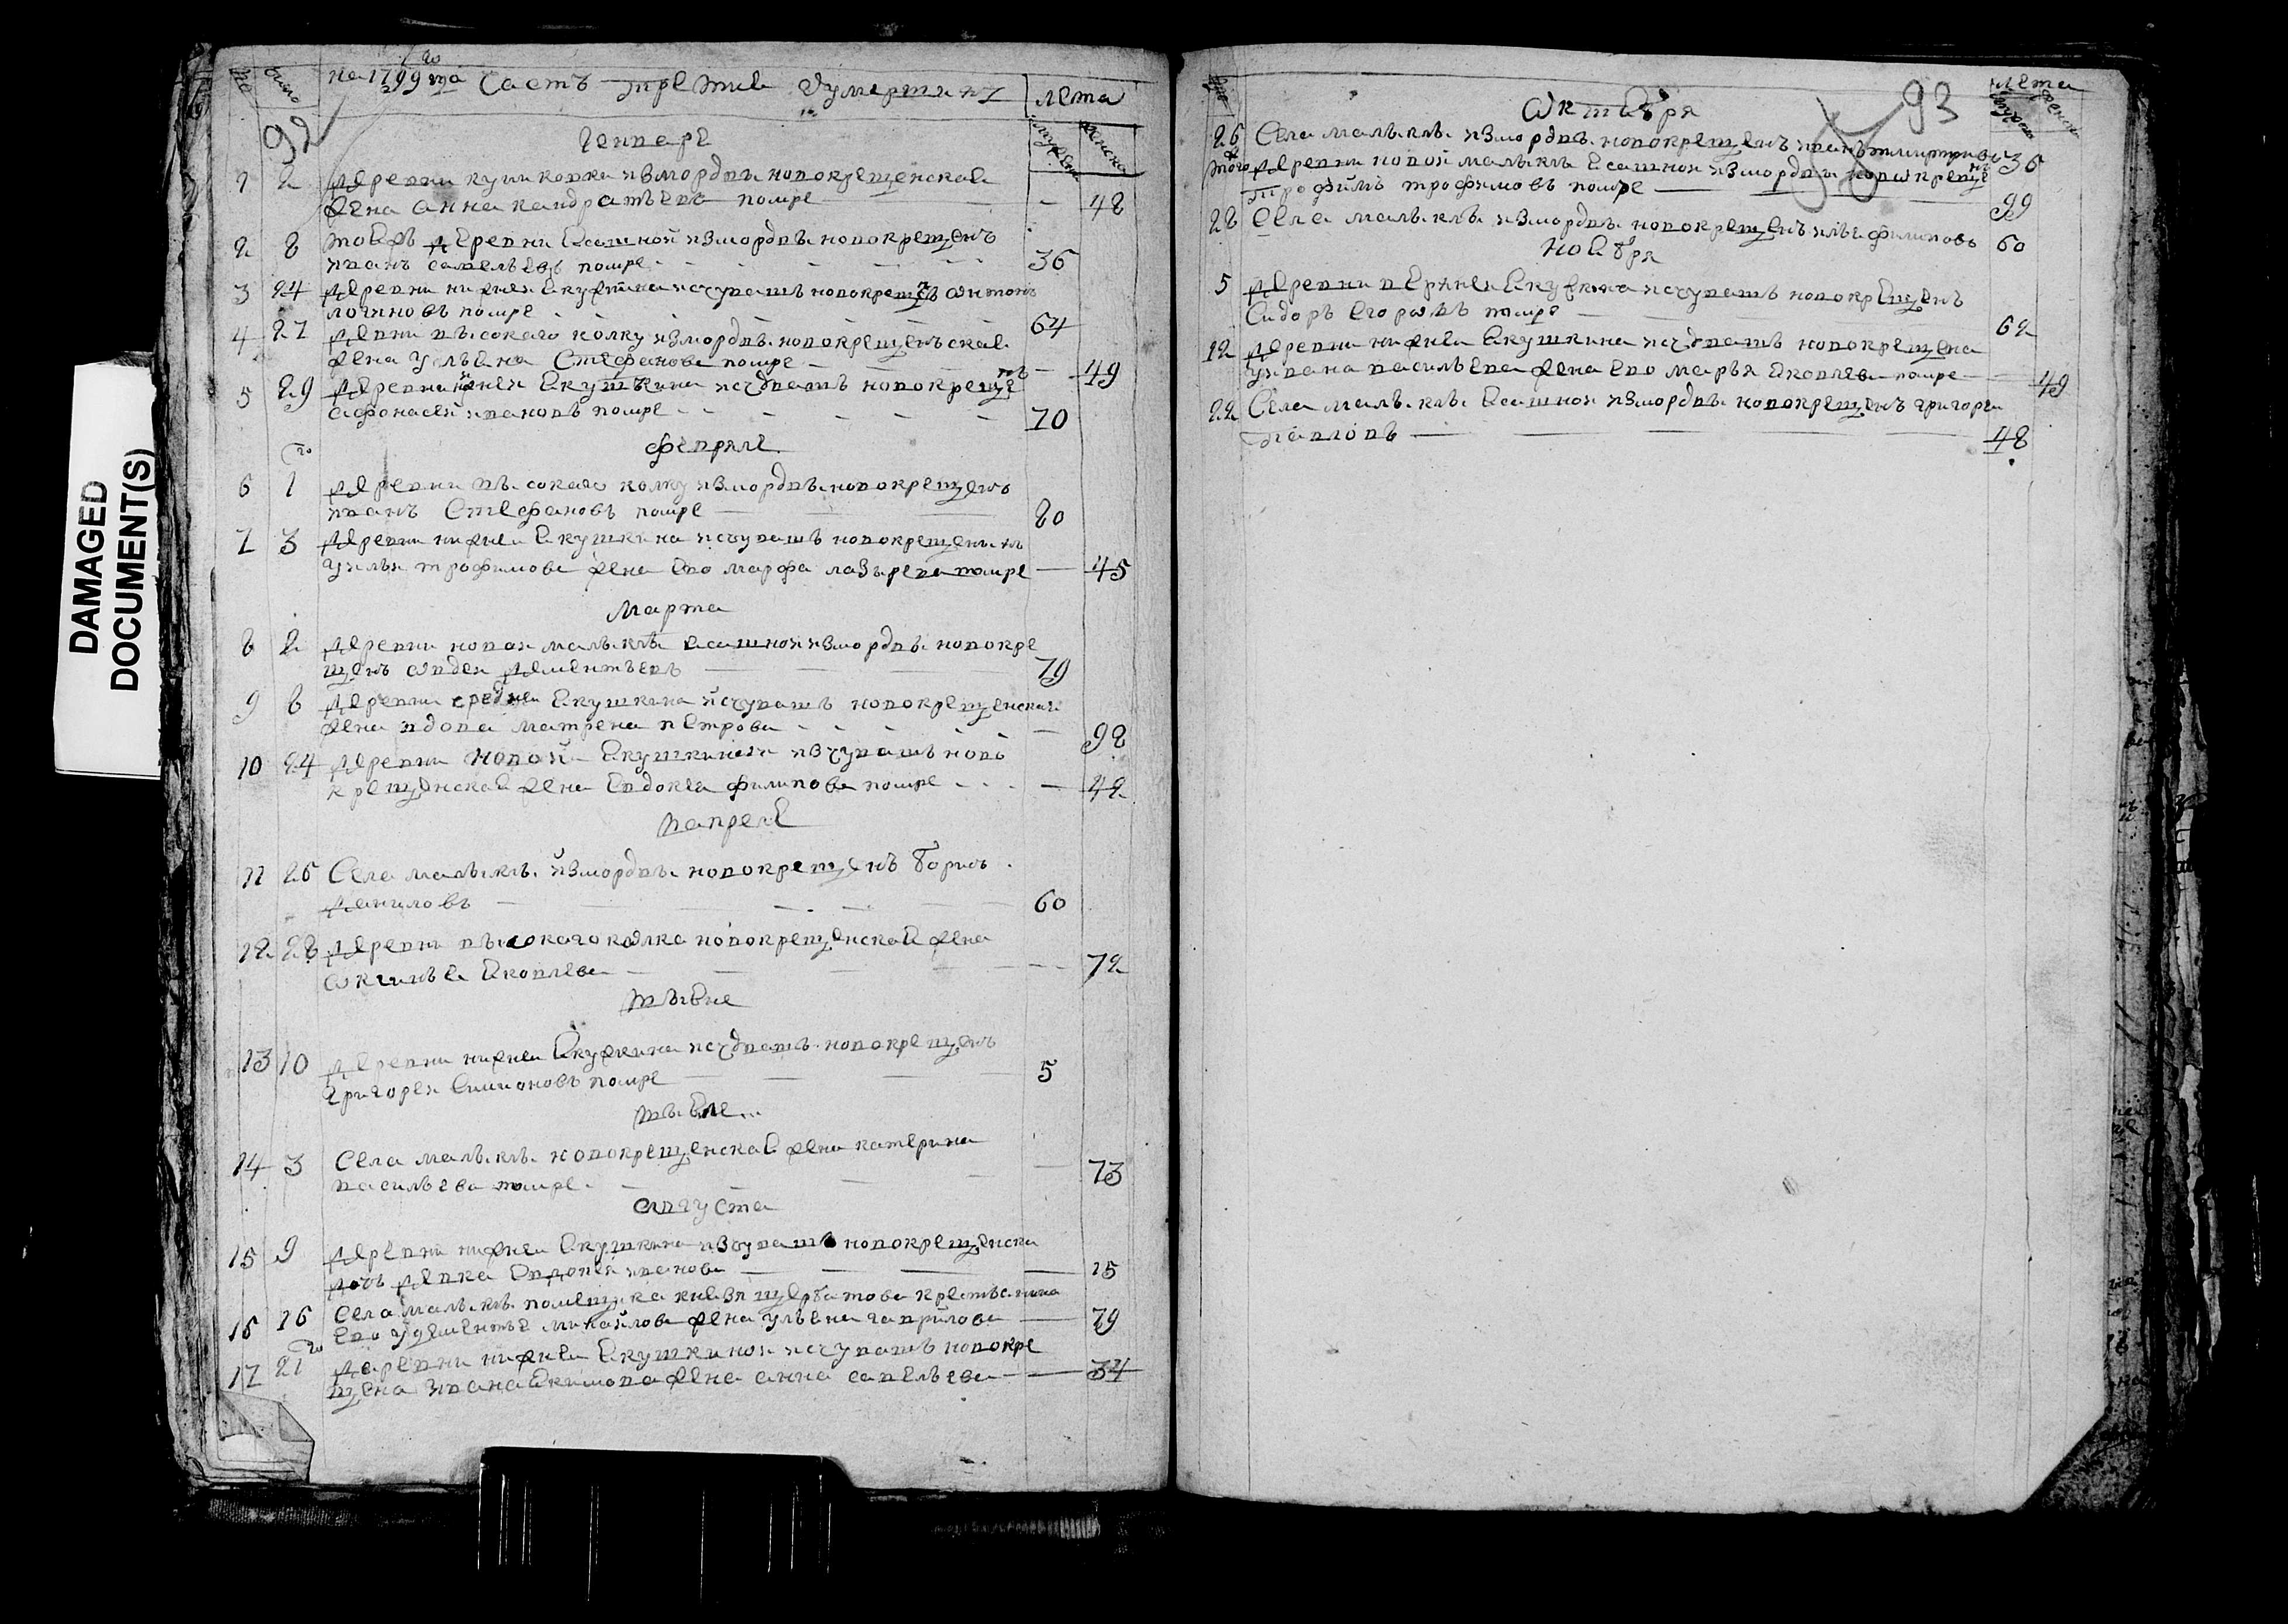 на 1799 года Часть третия оумерших
лета
число
мужеска
женска
92
Генваря
1 2 деревни кушковки измордвы новокрещенская
жена анна кандратьева помре — — 48
2 8 тояж деревни ясашной измордвы новокрещенъ
иванъ савельевъ помре 36
3 24 деревни нижней якушкина исчувашъ новокрещенъ антонъ
логиновъ помре 64
4 27 девни высокаго колку измордвы новокрещенъская
жена ульяна Стефанова помре — 49
5 29 деревни нижней якушкина исчувашъ новокрещенъ
афонасей ивановъ помре 70
февраля
6 1го деревни высокаго колку измордвы новокрещенъ
иванъ Стефановъ помре 80
7 3 деревни нижней якушкина исчувашъ новокрещенынъ
трофимова жена ево марфа лазырева помре — 45
марта
8 2 деревни новой малыклы ясашной измордвы новокре
щенъ авдей дементьевъ 79
9 8 деревни средней якушкина исчувашъ новокрещенская
жена вдова матрена петрова — 98
10 24 деревни новой якушкиной изчувашъ ново
крещенская жена евдокея филипова помре — 42
апреля
11 25 Села малыклы измордвы новокрещенъ борисъ
даниловъ 60
12 28 деревни высокаго колка новокрещенская жена
яковлева — 72
июня
13 10 деревни нижней якушкина исчувашъ новокрещенъ
григорей симионовъ помре 5
июля
14 3 Села малыклы новокрещенская жена катерина
васильева помре — 73
августа
15 9 деревни нижней якушкина изчувашъ новокрещенска
дочь девка ивановa — 15
16 16 Села малыклы помещика князя щербатова крестьянина
ево удементья михайлова жена ульяна гаврилова — 79
17 21го деревни нижней якушкиной исчувашъ новокре
щена ивана якимова жена анна савельева — 34
93
лета
мужеска
женска
октября
26 Села малыклы измордвы новокрещенъ иванъ дмитриевъ 36
того ж деревни новой малыклы ясашной измордвы новокрещенъ
трофимъ трофимовъ помре 99
28 Села малыклы измордвы новокрещенъ илья филиповъ 60
ноября
5 деревни верхней якушкина исчувашъ новокрещенъ
Сидоръ егоровъ помре 62
12 деревни нижней якушкина исчувашъ новокрещена
уивана васильева жена ево марья яковлева помре — 49
22 Села малыклы ясашной измордвы новокрещенъ григорей
павловъ 48
DAMAGED
DOCUMENT(S)